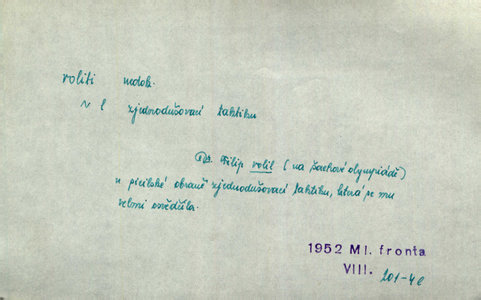 voliti nedok.
v l zjednodušovací taktiku
Dr. Filip volil (na šachové olympiádě)
v sicilské obraně zjednodušovací taktiku, která se mu
velmi osvědčila.
1952 Ml. fronta
VIII. 201-4e